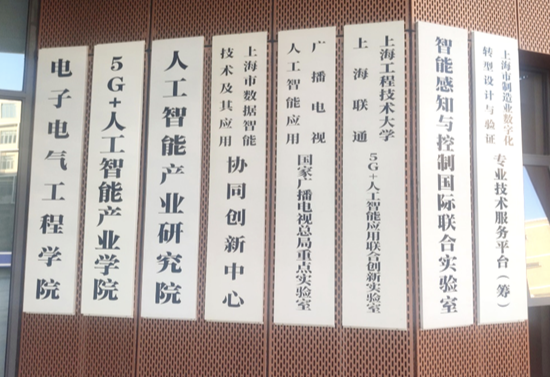 电子电气工程学院
5G+人工智能产业学院
人工智能产业研究院
上海市数据智能
技术及其应用
协同创新中心
广播电视
人工智能应用
国家广播电视总局重点实验室
上海工程技术大学
上海联通
5G+人工智能应用联合创新实验室
智能感知与控制国际联合实验室
上海市制造业数字化
转型设计与验证
专业技术服务平台(筹)